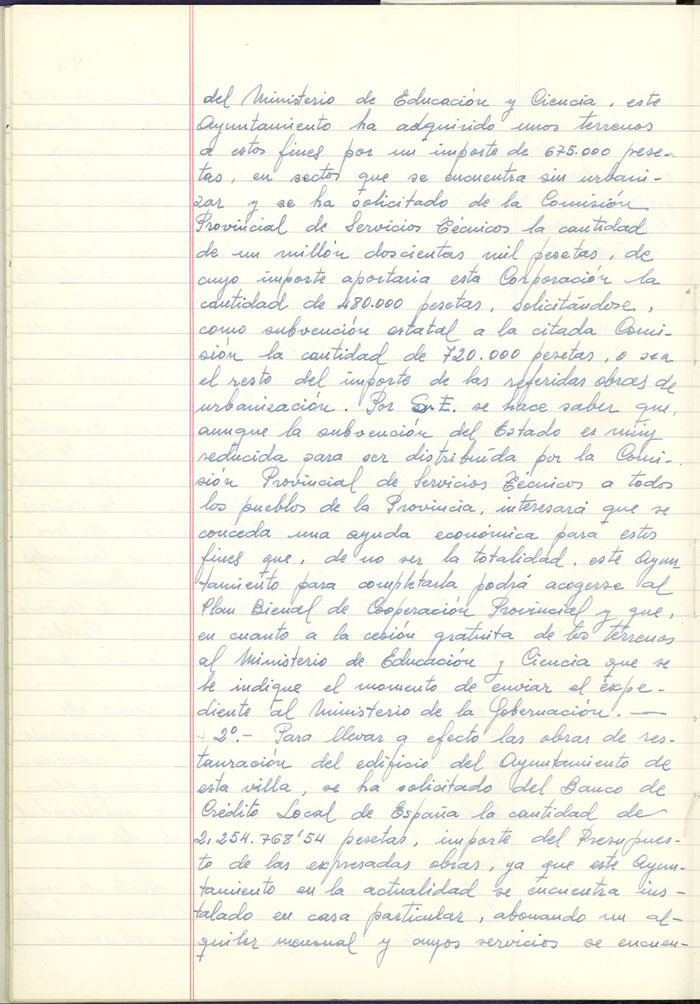 del Ministerio de Educación y Ciencia, este
Ayuntamiento ha adquirido unos terrenos
a estos fines por un importe de 675.000 pese-
tas, en sector que se encuentra sin urbani-
zar y se ha solicitado de la Comisión
Provincial de Servicios Técnicos la cantidad
de un millón doscientas mil pesetas, de
cuyo importe aportaria esta Corporación la
cantidad de 480.000 pesetas, solicitándose,
como subvención estatal a la citada Comi-
sión la cantidad de 720.000 pesetas, o sea
el resto del importe de las referidas obras de
urbanización. Por S.E. se hace saber que,
aunque la subvención del Estado es muy
reducida para ser distribuída por la Comi-
sión Provincial de Servicios Técnicos a todos
los pueblos de la Provincia, interesará que se
conceda una ayuda económica para estos
fines que, de no ser la totalidad, este Ayun-
tamiento para completarla podrá acogerse al
Plan Bienal de Cooperación Provincial y que,
en cuanto a la cesión gratuita de los terrenos
al Ministerio de Educación y Ciencia que se
le indique el momento de enviar el expe-
diente al Ministerio de la Gobernación. —
- 2º.- Para llevar a efecto las obras de res-
tauración del edificio del Ayuntamiento de
esta villa, se ha solicitado del Banco de
Crédito Local de España la cantidad de
2,254.768'54 pesetas, importe del Presupues-
to de las expresadas obras, ya que este Ayun-
tamiento en la actualidad se encuentra ins-
talado en casa particular, abonando un al-
quiler mensual y cuyos servicios se encuen-